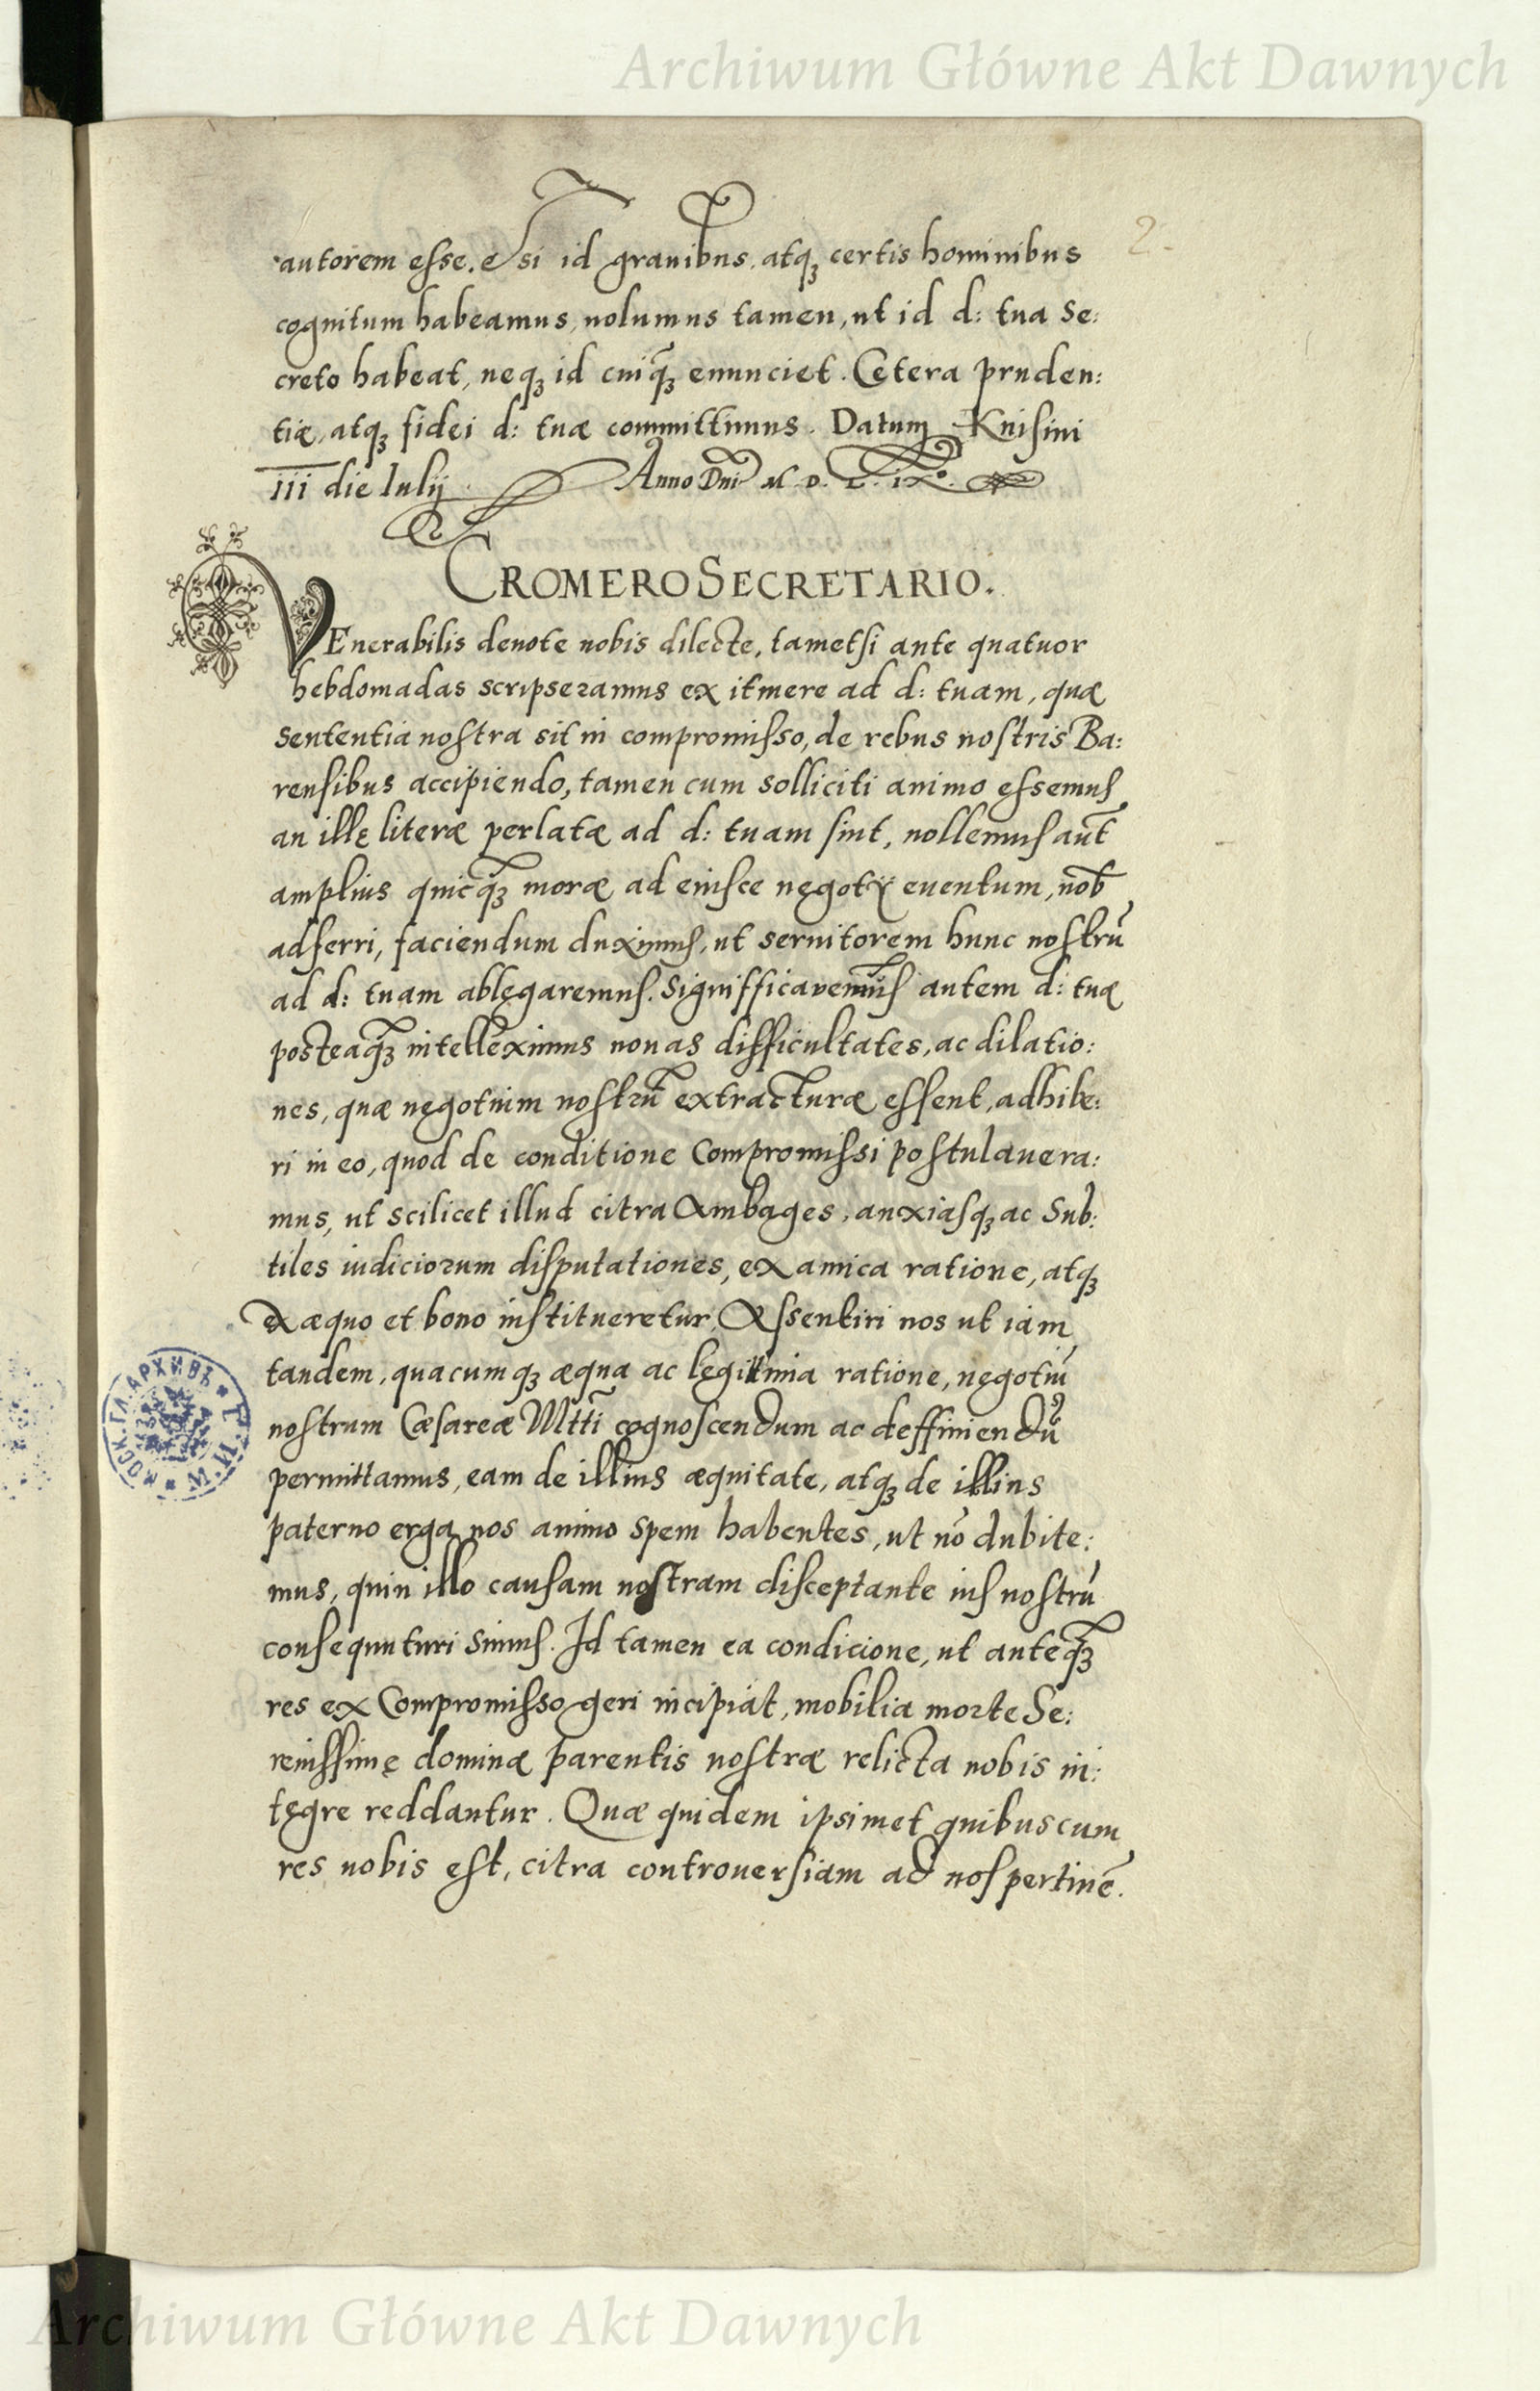 Archiwum Główne Akt Dawnych
2.
autorem esse. etsi id grauibus. atqꝫ certis hominibus
cognitum habeamus, nolumus tamen, ut id d: tua se:
creto habeat, neqꝫ id cuiq̃ꝫ enunciet. Cetera pruden:
tiæ, atqꝫ fidei d: tuæ committimus. Datum Knisini
III die Iulij Anno Dñi M. D. L. IX°.
CROMERO SECRETARIO.
VEnerabilis deuote nobis dilecte, tametsi ante quatuor
hebdomadas scripseramus ex itinere ad d: tuam, quæ
sententia nostra sit in compromisso, de rebus nostris Ba:
rensibus accipiendo, tamen cum solliciti animo essemus
an illę literæ perlatæ ad d: tuam sint, nollemus aut̃
amplius quicq̃ꝫ moræ ad eiusce negotÿ euentum, nob̃
adferri, faciendum duximus, ut seruitorem hunc nostrũ
ad d: tuam ablęgaremus. Signifficavemus autem d: tuæ
posteaq̃ꝫ intelleximus nouas difficultates, ac dilatio:
nes, quæ nęgotium nostrũ extracturæ essent, adhibe:
ri in eo, quod de conditione Compromissi postulauera:
mus, ut scilicet illud citra Ambages, anxiasqꝫ ac Sub:
tiles iudiciorum disputationes, ex amica ratione, atqꝫ
ex æquo et bono institueretur, Assentiri nos ut iam
tandem, quacumqꝫ æqua ac lęgittimia ratione, nęgotiũ
nostrum Cæsareæ Mtti cognoscendum ac deffiniendũ
permittamus, eam de illius æquitate, atqꝫ de illius
paterno erga nos animo spem habentes, ut nõ dubite:
mus, quin illo causam nostram disceptante ius nostrũ
consequuturi simus. Id tamen ea condicione, ut anteq̃ꝫ
res ex Compromisso geri incipiat, mobilia morte Se:
renissimę dominæ parentis nostræ relicta nobis in:
tęgre reddantur. Quæ quidem ipsimet quibuscum
res nobis est, citra controuersiam ad nos pertinẽ.
МОСК. ГЛ. АРХИВЪ * М. И. Д. *
Archiwum Główne Akt Dawnych